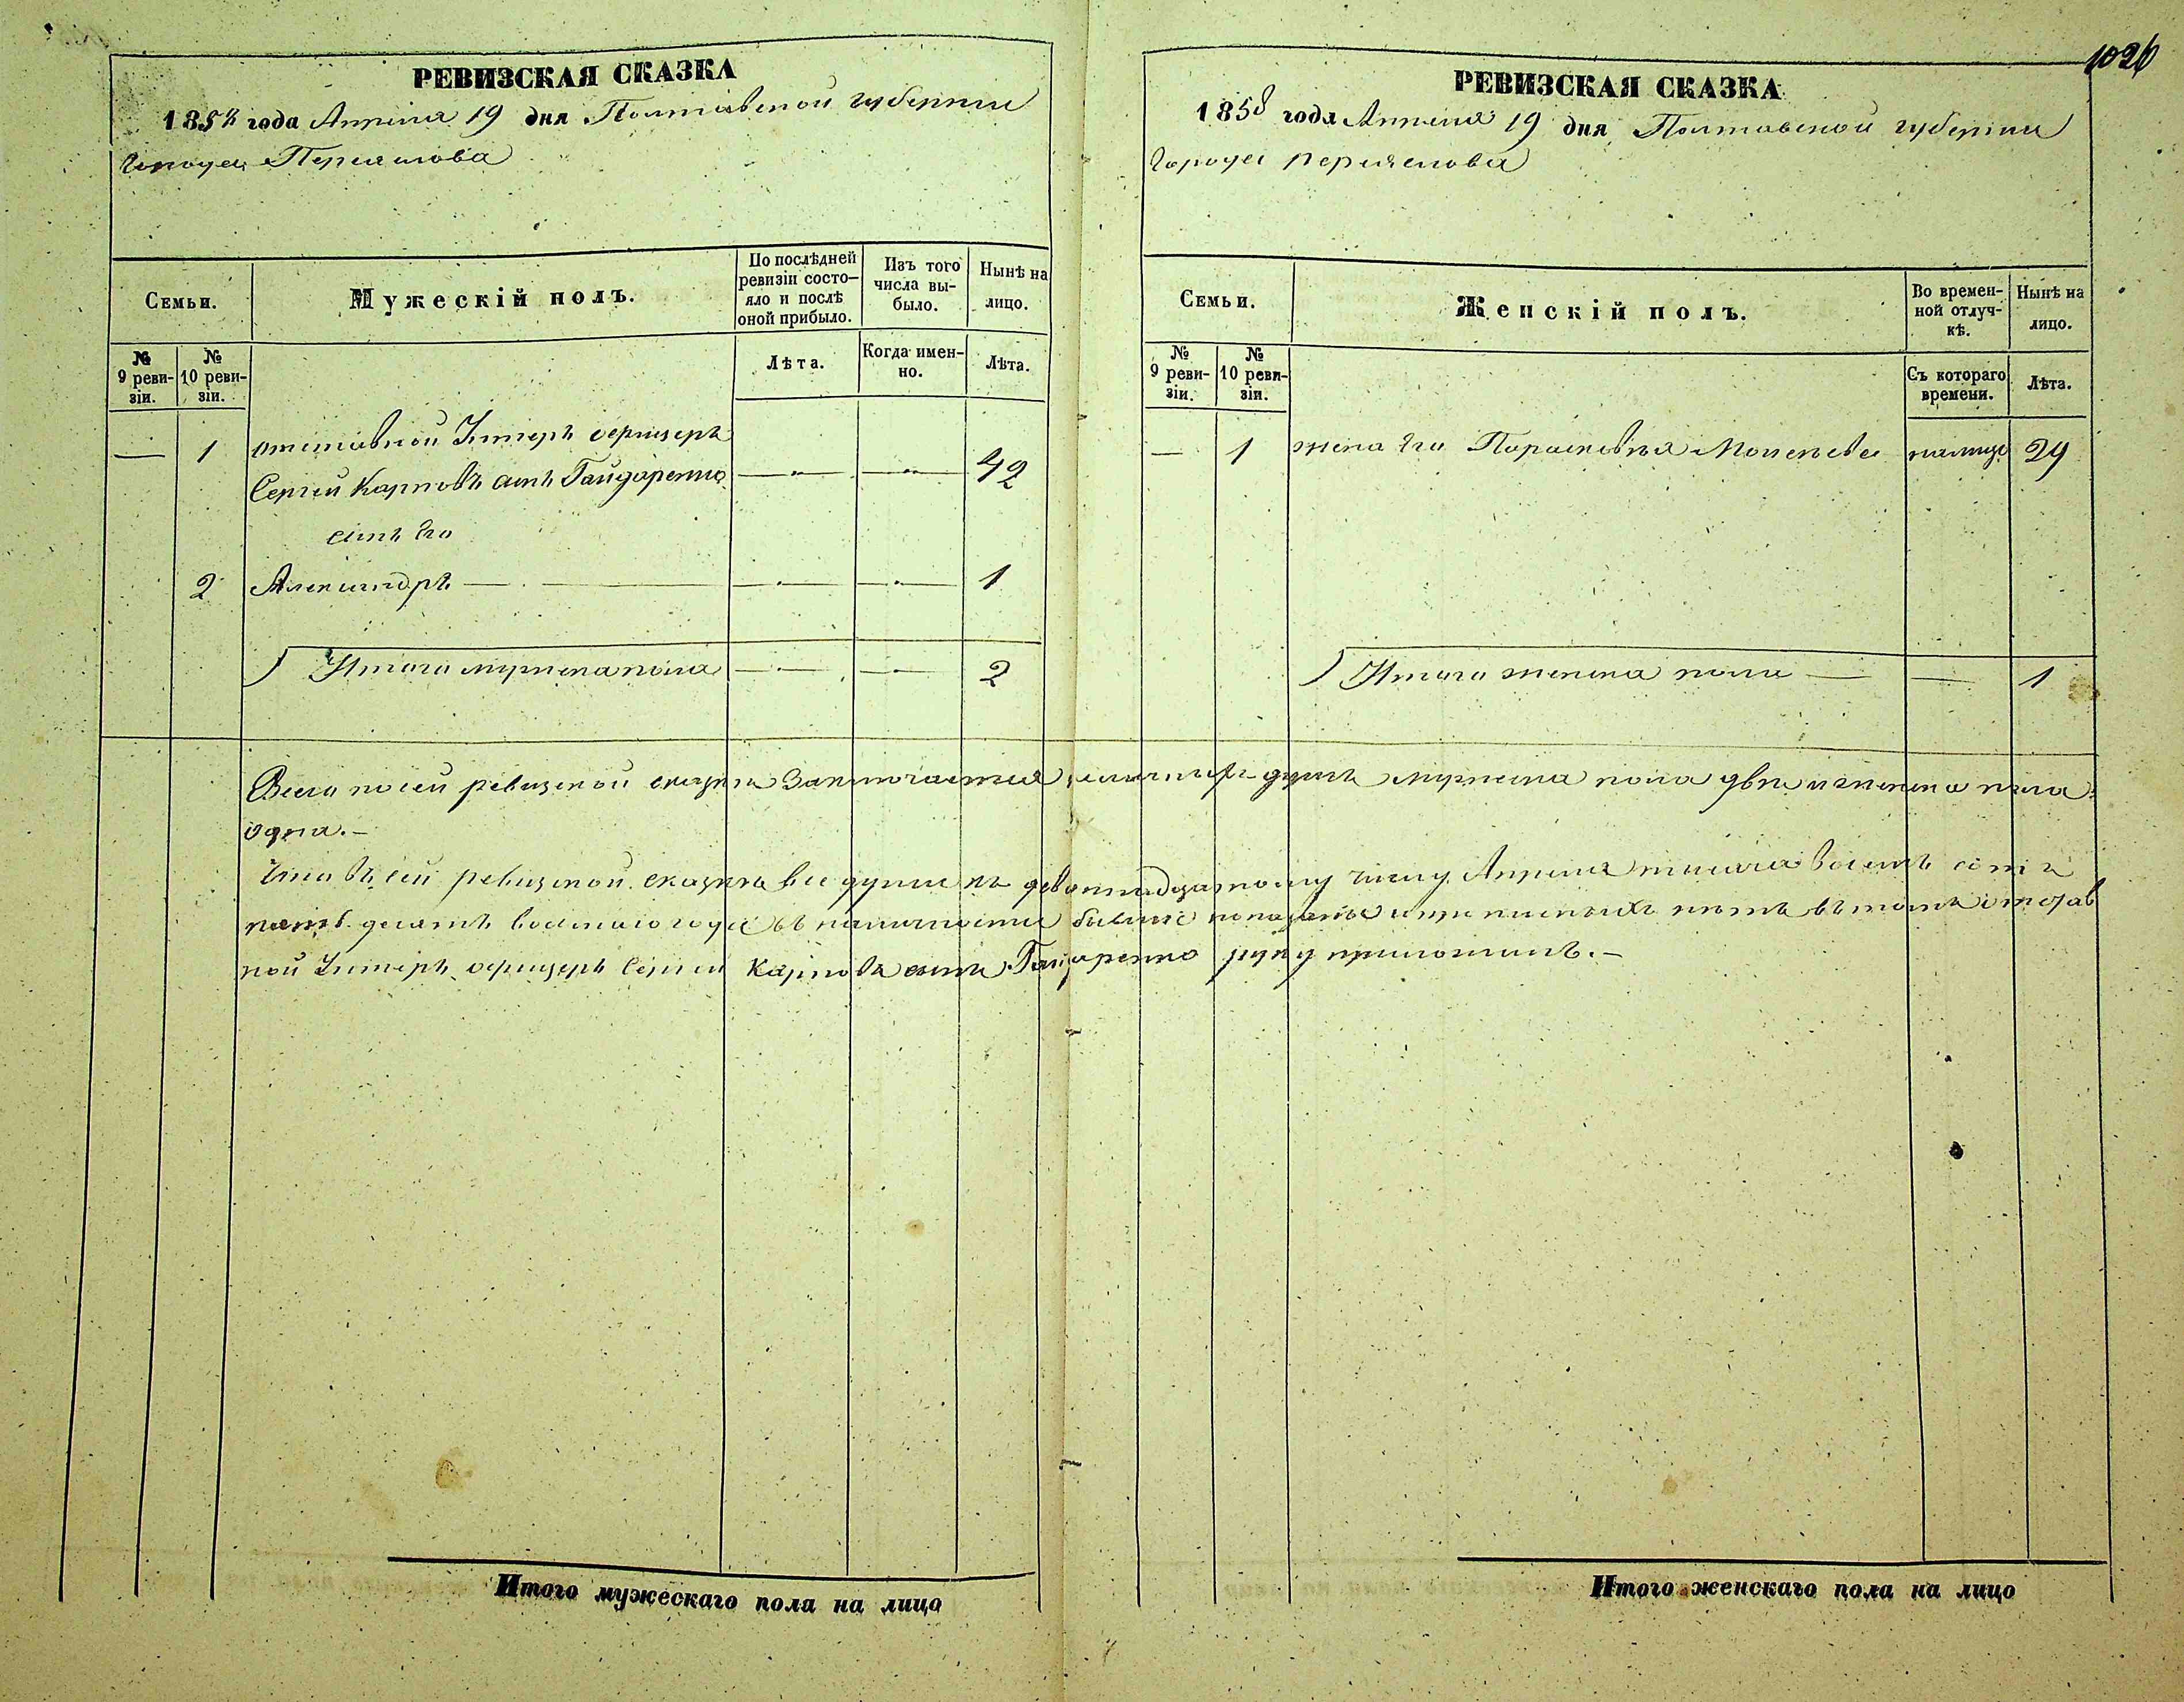 1026
РЕВИЗСКАЯ СКАЗКА
1858 года Апреля 19 дня Полтавской губернии
Города Переяслова
Семьи.
Мужескій полъ.
По послѣдней ревизіи состо-
яло и послѣ оной прибыло.
Изъ того числа вы-
было.
Нынѣ на лицо.
№ 9 реви-
зіи.
№ 10 реви-
зіи.
Лѣта.
Когда имен-
но.
Лѣта.
1 отставной Унтеръ оерицеръ
Сергей Карповъ сынъ Гайдаренко 42
сынъ Его
2 Александръ 1
Итого мужеска пола 2
РЕВИЗСКАЯ СКАЗКА
1858 года Апреля 19 дня Полтавской губернии
Города Переяслова
Семьи.
Женскій полъ.
Во времен-
ной отлуч-
кѣ.
Нынѣ на лицо.
№ 9 реви-
зіи.
№ 10 реви-
зіи.
Съ котораго времени.
Лѣта.
1 жена Его Параскевья 29
Итого женска пола 1
Всего по сей ревизской сказки заключается душъ мужеска пола две и женска пола
одна.
Что въ сей ревизской сказке все души къ девятнадцатому числу Апреля тысяча восемъ сотъ
пятьдесятъ восмаго года въ наличности бывшие показаны и прописныхъ нетъ въ томъ отстав
ной Унтеръ оерицеръ Сергей Карповъ сынъ Гайдаренко руку приложилъ.
Итого мужескаго пола на лицо
Итого женскаго пола на лицо